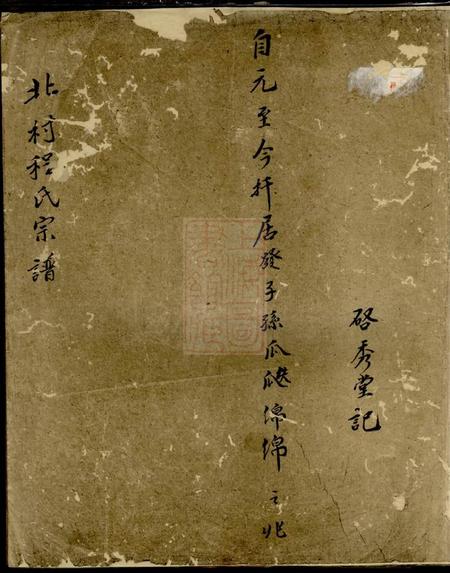 啓秀堂記
自元至今扦居發子孫瓜瓞綿綿之兆
北村程氏宗譜